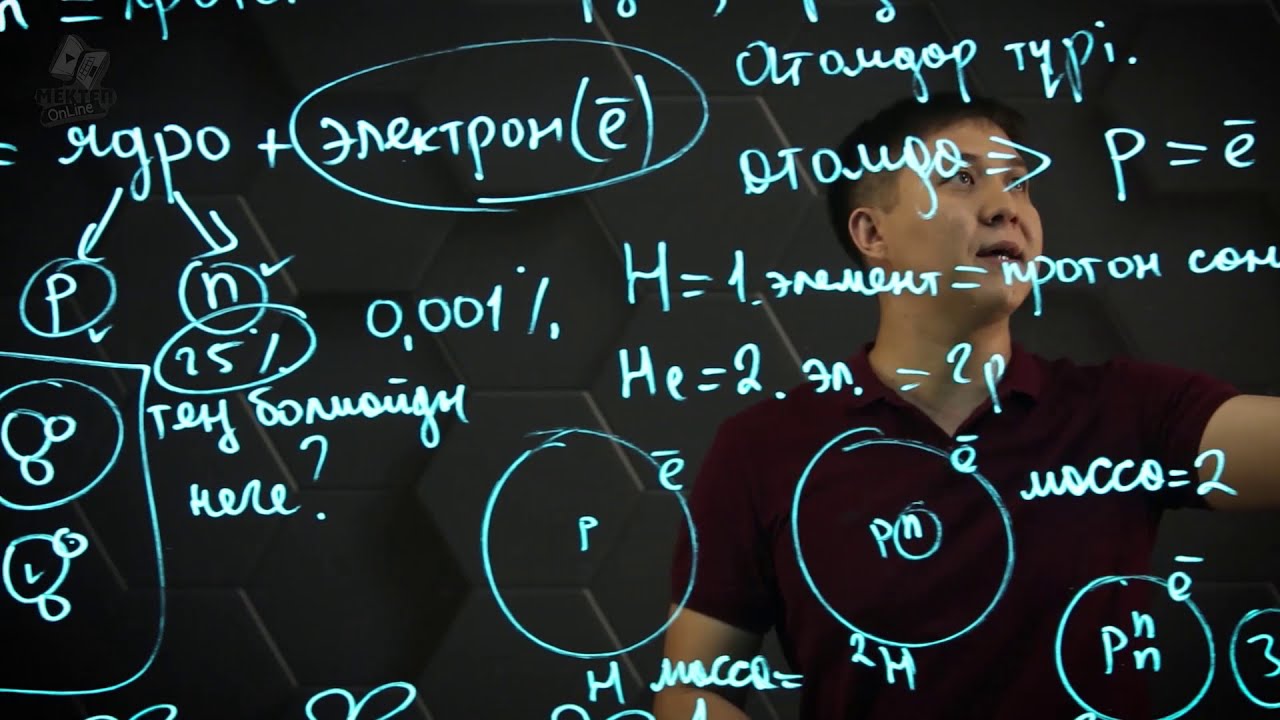 МЕКТЕП
OnLine
Атомдар түрі.
= ядро + электрон(ē)
атомда => P = ē
P n
H = 1. элемент = протон сон
0,001%.
25%.
He = 2. эл. = 2p
тең болмайды
неге?
?
ē
P
ē
Pn
масса = 2
H масса =
²H
ē
P n n
3
1